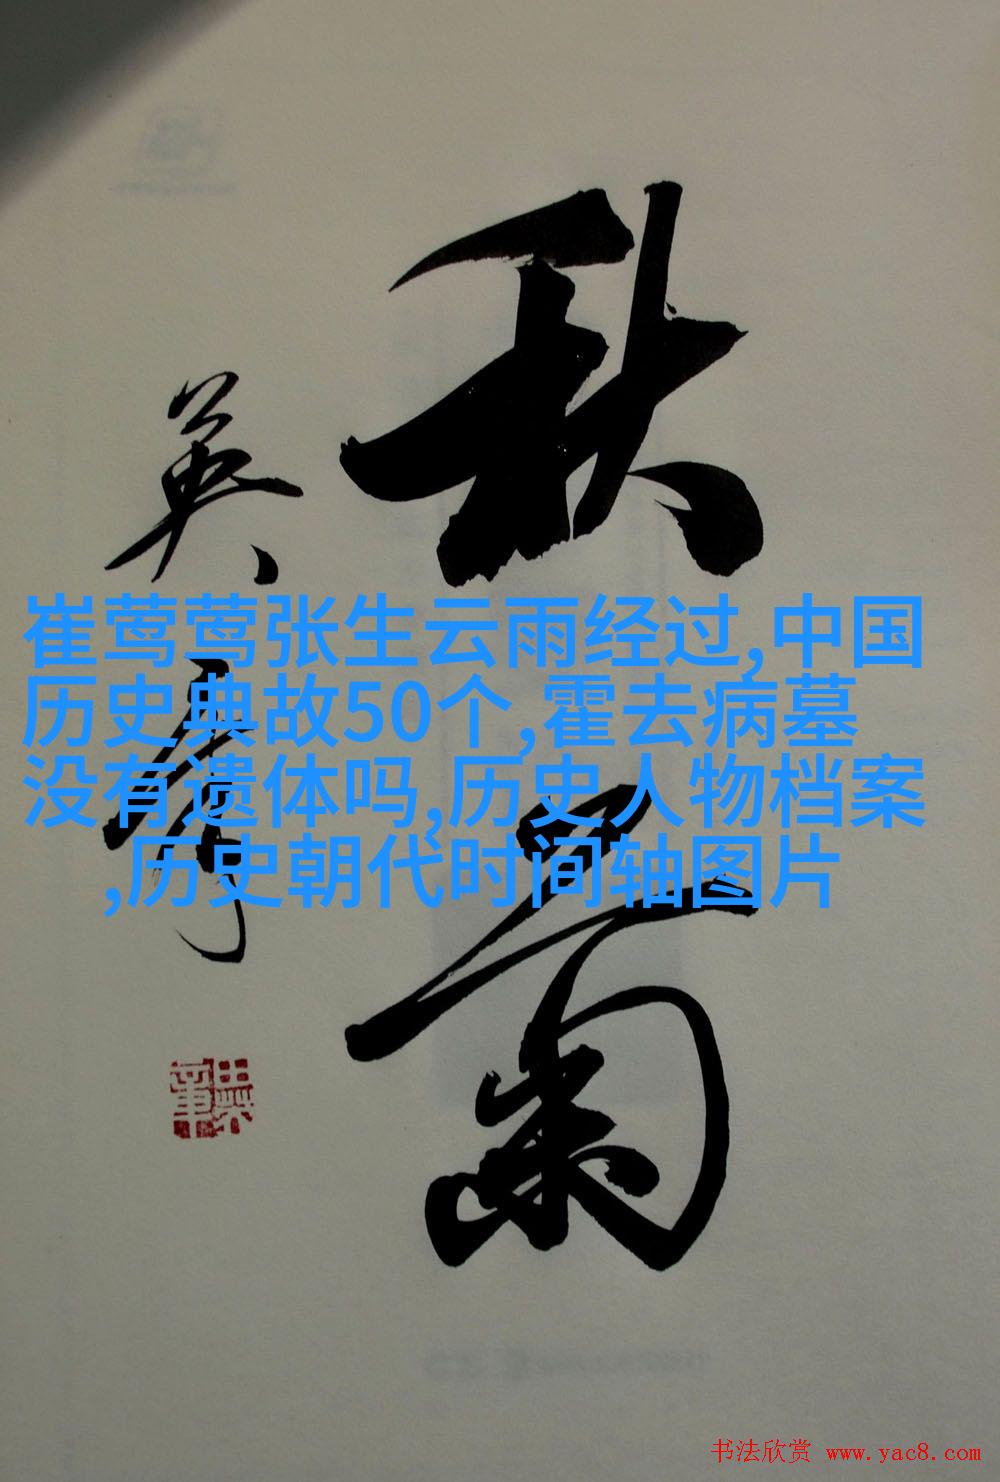 秋雨
英李
崔莺莺张生云雨经过,中国
历史典故50个,霍去病墓
没有遗体吗,历史人物档案
,历史朝代时间轴图片
书法欣赏 www.yac8.com